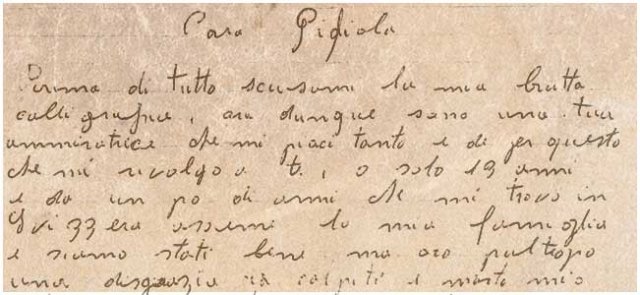 Cara
Prima di tutto scusami la mia brutta
calligrafia, ora dunque sono una tua
ammiratrice che mi piaci tanto e di per questo
che mi rivolgo a t., o solo 19 anni
e da un po di anni che mi trovo in
Svizzera la mia famiglia
e siamo stati bene ma oro pultropo
una disgrazia colpiti e morto mio